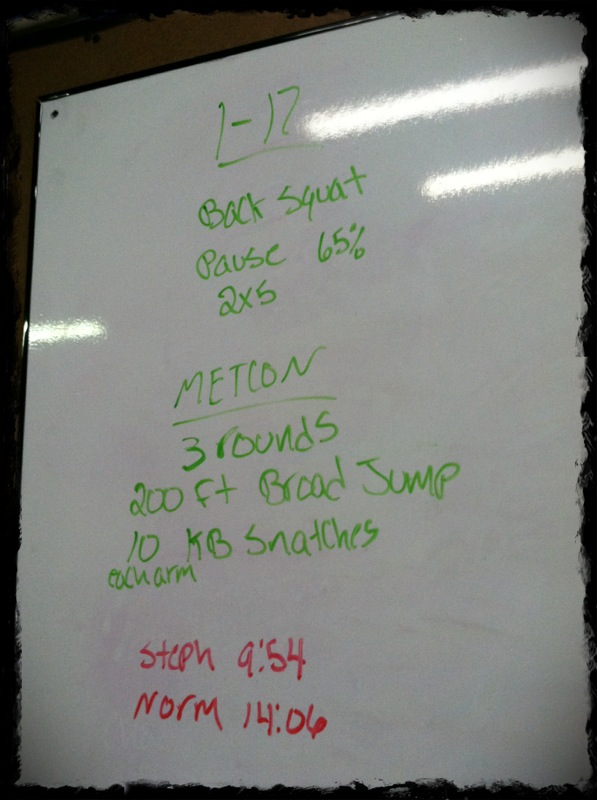 1-17
Back Squat
Pause 65%
2x5
METCON
3 rounds
200 ft Broad Jump
10 KB Snatches
each arm
Steph 9:54
Norm 14:06